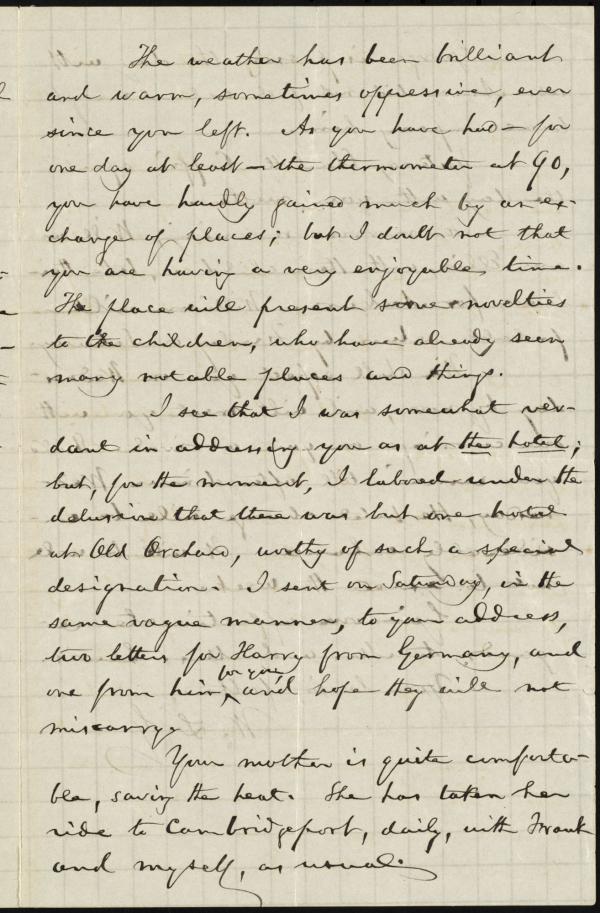 The weather has been brilliant
and warm, sometimes oppressive, ever
since you left. As you have had — for
one day at least — the thermometer at 90,
you have hardly gained much by an ex-
change of places; but I doubt not that
you are having a very enjoyable time.
The place will present some novelties
to the children, who have already seen
many notable places and things.
I see that I was somewhat ver-
dant in addressing you as at the hotel;
but, for the moment, I labored under the
delusion that there was but one hotel
at Old Orchard, worthy of such a special
designation. I sent on Saturday, in the
same vague manner, to your address,
two letters for Harry from Germany, and
for you
one from him, and hope they will not
miscarry.
Your mother is quite comforta-
ble, saving the heat. She has taken her
ride to Cambridgeport, daily, with Frank
and myself, as usual.